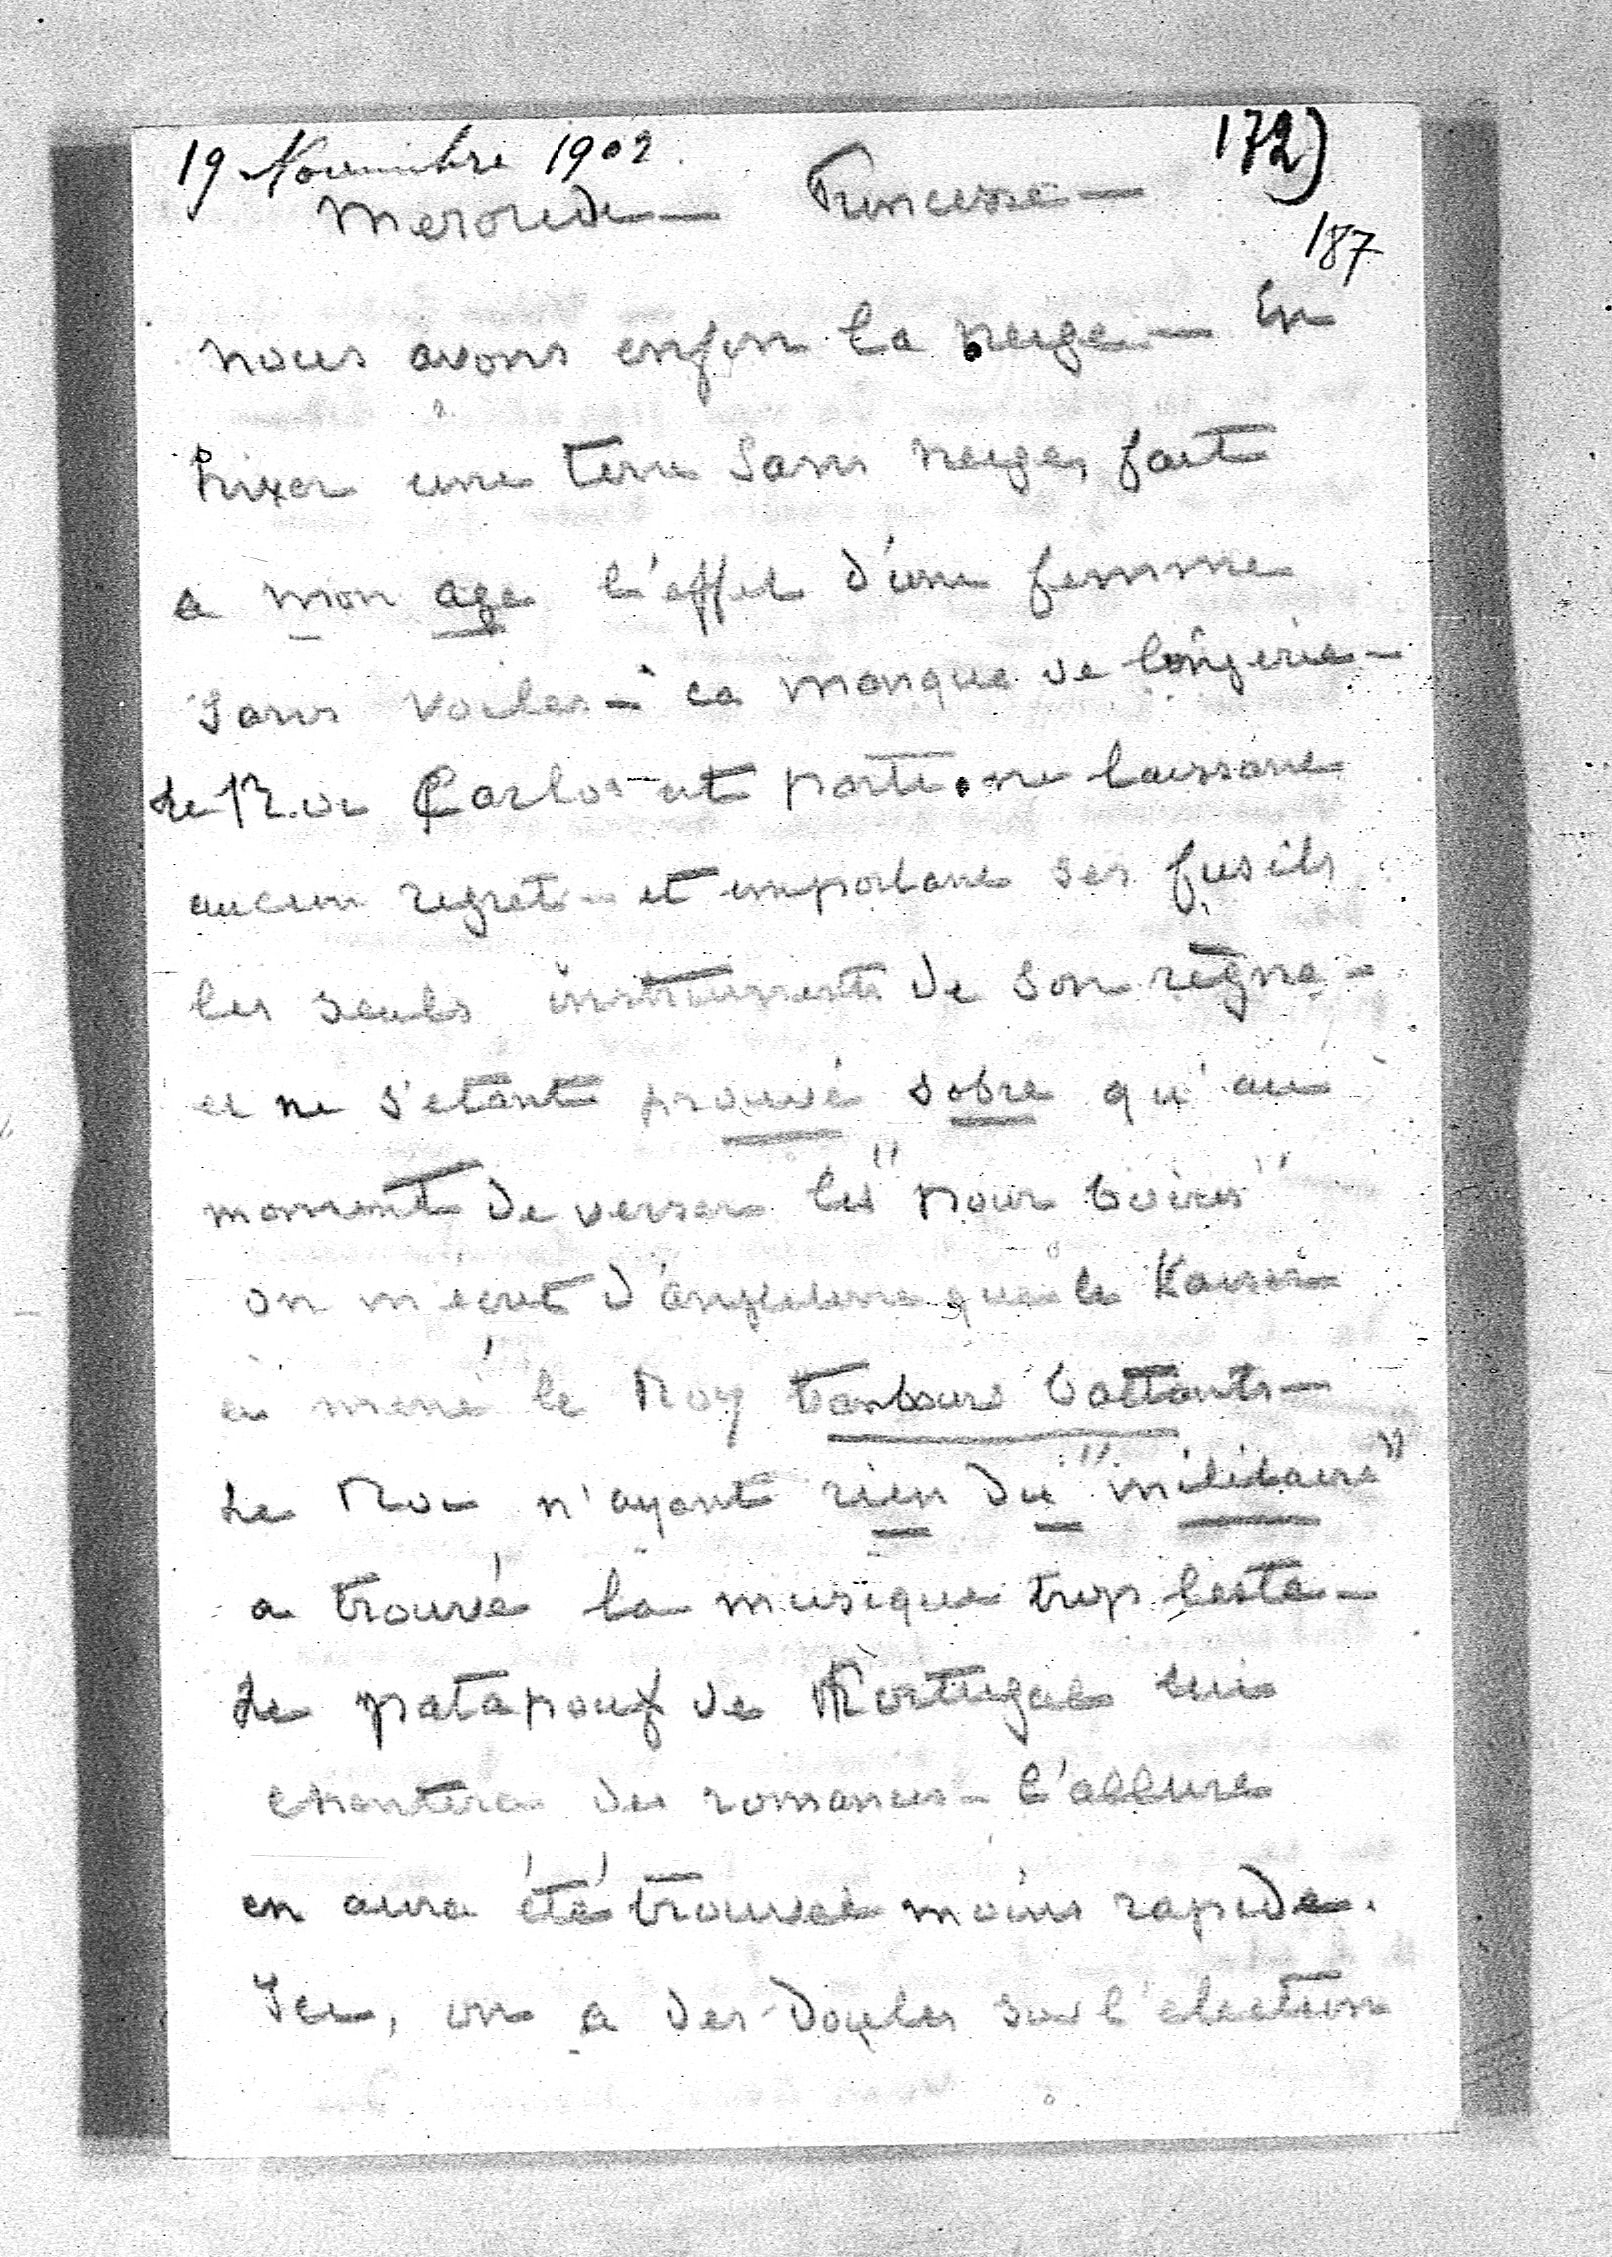 19 Novembre 1902. 172)
Mercredi — Princesse —
187
nous avons enfin la neige — En
hiver une terre sans neige, fait
a mon age l'effet d'une femme
sans voiles — ca manque de lingerie —
Le R. oi Carlos est parti ne laissant
aucun regret — et emportant ses fusils
les seuls instruments de son règne —
et ne s'etant prouvé sobre qu'au
moment de verser les "pour boires"
on m'ecrit d'angleterre que le Kaiser
a mené le Roy tambours battants —
Le Roi n'ayant rien du "militaire"
a trouvé la musique trop leste —
Le patapouf de Portugal lui
chantera des romances — l'allure
en aura été trouvée moins rapide.
Ici, on a des doutes sur l'election